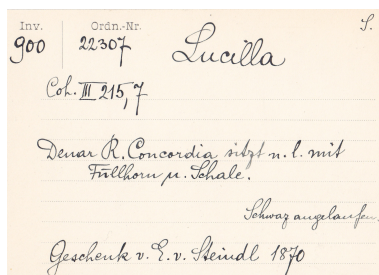 Inv. Ordn.-Nr. S.
900 22307 Lucilla
Coh. III 215,7
Denar R. Concordia sitzt n. l. mit
Füllhorn u. Schale.
Schwaz angelaufen.
Geschenk v. E. v. Steindl 1870